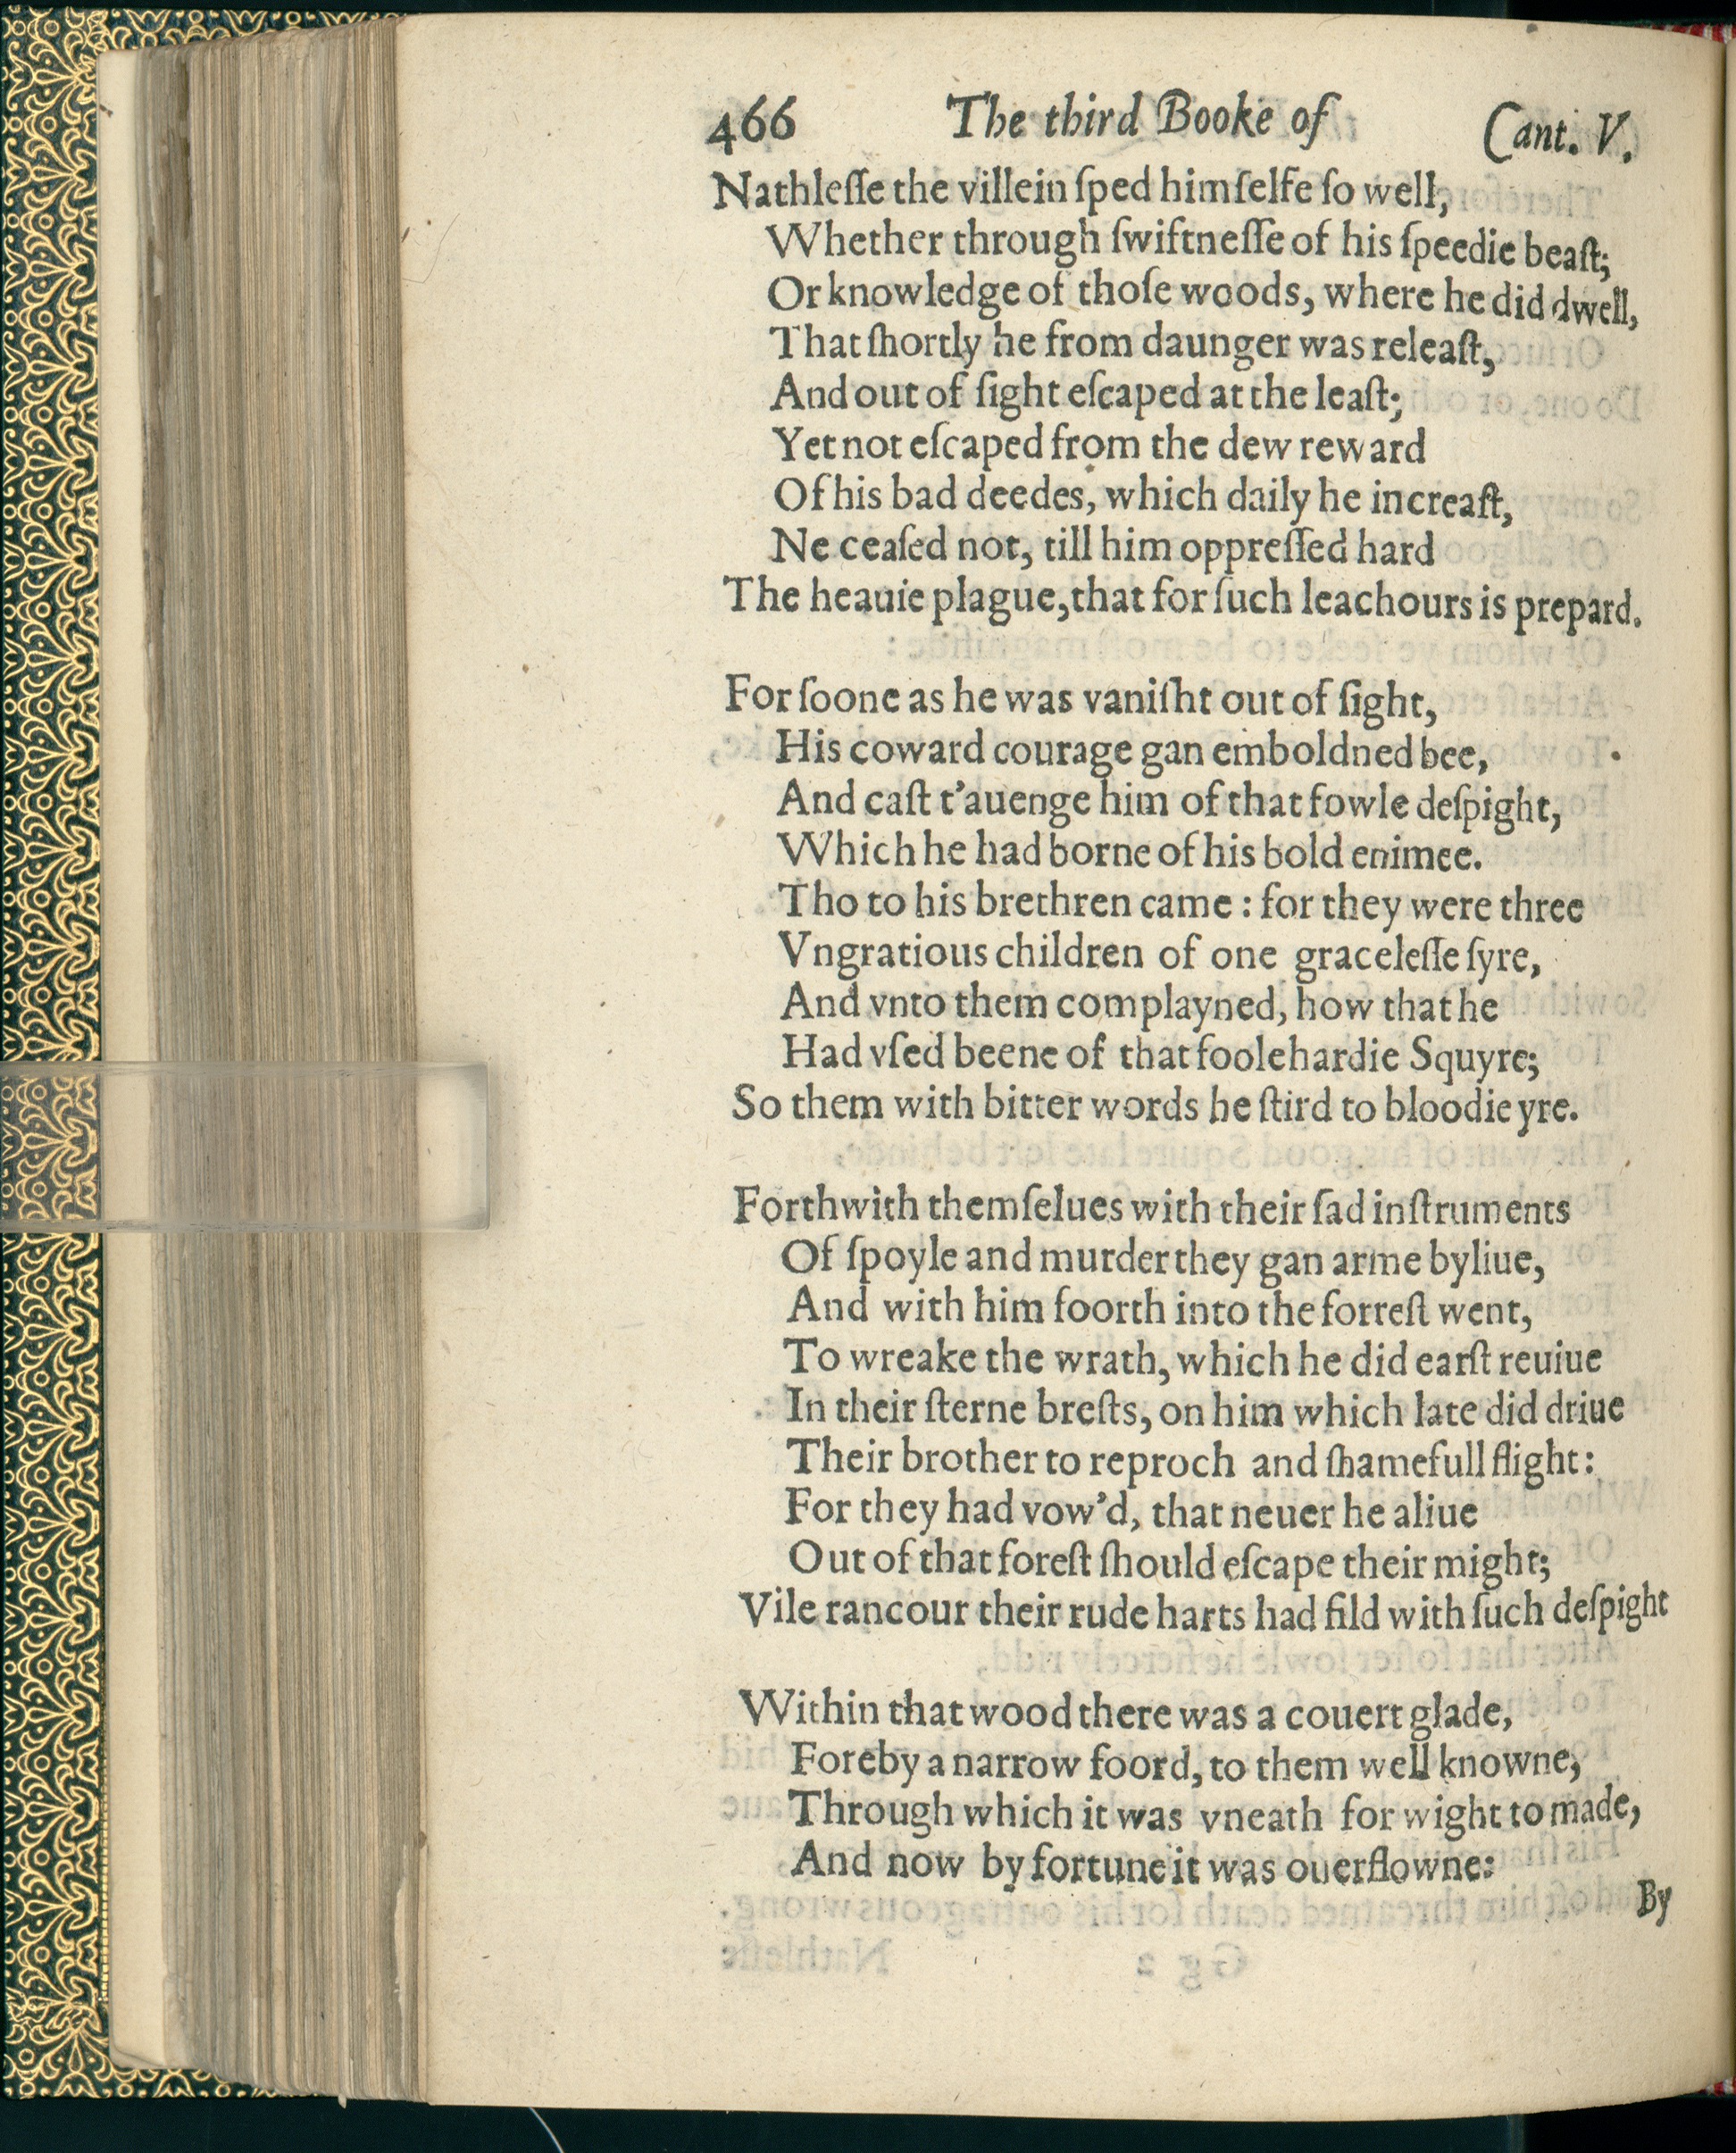 466 The third Booke of Cant. V.
Nathleſſe the villein ſped himſelfe ſo well,
Whether through ſwiftneſſe of his ſpeedie beaſt;
Or knowledge of thoſe woods, where he did dwell,
That ſhortly he from daunger was releaſt,
And out of ſight eſcaped at the leaſt;
Yet not eſcaped from the dew reward
Of his bad deedes, which daily he increaſt,
Ne ceaſed not, till him oppreſſed hard
The heauie plague, that for ſuch leachours is prepard.
For ſoone as he was vaniſht out of ſight,
His coward courage gan emboldned bee,
And caſt t'auenge him of that fowle deſpight,
Which he had borne of his bold enimee.
Tho to his brethren came : for they were three
Vngratious children of one graceleſſe ſyre,
And vnto them complayned, how that he
Had vſed beene of that foolehardie Squyre;
So them with bitter words he ſtird to bloodie yre.
Forthwith themſelues with their ſad inſtruments
Of ſpoyle and murder they gan arme byliue,
And with him foorth into the forreſt went,
To wreake the wrath, which he did earſt reuiue
In their ſterne breſts, on him which late did driue
Their brother to reproch and ſhamefull flight:
For they had vow'd, that neuer he aliue
Out of that foreſt ſhould eſcape their might;
Vile rancour their rude harts had fild with ſuch deſpight
Within that wood there was a couert glade,
Foreby a narrow foord, to them well knowne,
Through which it was vneath for wight to made,
And now by fortune it was ouerflowne:
By